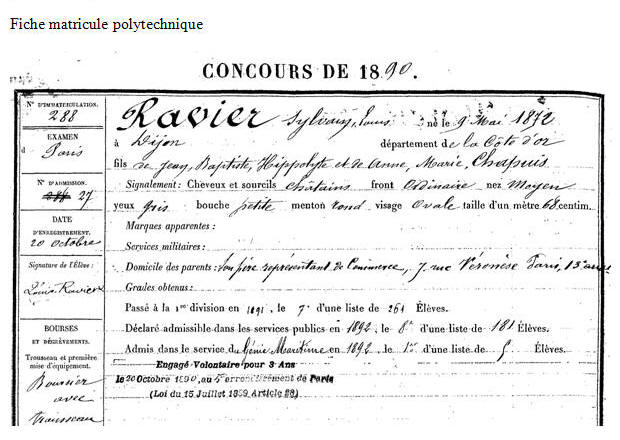 Fiche matricule polytechnique
CONCOURS DE 1890.
N° D'IMMATRICULATION.
288
EXAMEN
d Paris
N° D'ADMISSION.
27
DATE
D'ENREGISTREMENT.
20 octobre
Signature de l'Élève :
Louis Ravier
BOURSES
ET DÉGRÈVEMENTS.
Trousseau et première
mise d'équipement.
Boursier
avec
trousseau
Ravier Sylvain, Louis né le 9 Mai 1872
à Dijon département de la Côte d'or
fils de Jean, Baptiste, Hippolyte et de Anne, Marie, Chapuis
Signalement : Cheveux et sourcils châtains front Ordinaire nez Moyen
yeux gris bouche petite menton rond visage Ovale taille d'un mètre 68 centim.
Marques apparentes :
Services militaires :
Domicile des parents : Son père représentant de Commerce, 7 rue Véronèse Paris, 13e arr
Grades obtenus :
Passé à la 1re division en 1891, le 7e d'une liste de 261 Élèves.
Déclaré admissible dans les services publics en 1892, le 8e d'une liste de 181 Élèves.
Admis dans le service du Génie Maritime en 1892, le 1er d'une liste de 5 Élèves.
Engagé Volontaire pour 3 Ans
le 20 Octobre 1890, au 5e arrondissement de Paris
(Loi du 15 Juillet 1889 Article 28)